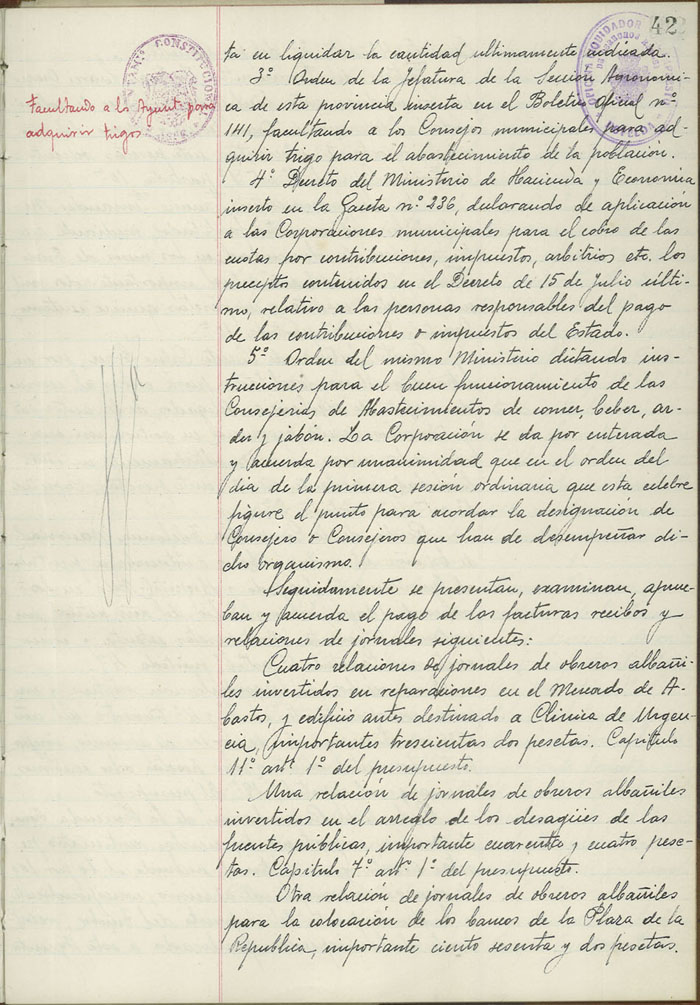 42
ta en liquidar la cantidad ultimamente indicada.
3º Orden de la Jefatura de la Sección Agronomi-
ca de esta provincia inserta en el Boletin oficial nº
141, facultando a los Consejos municipales para ad-
quirir trigo para el abastecimiento de la población.
Facultando a los Ayunt. para
adquirir trigos
4º Decreto del Ministerio de Hacienda y Economia
inserto en la Gaceta nº 236, declarando de aplicación
a las Corporaciones municipales para el cobro de las
cuotas por contribuciones, impuestos, arbitrios etc. los
preceptos contenidos en el Decreto de 15 de Julio últi-
mo, relativo a las personas responsables del pago
de las contribuciones o impuestos del Estado.
5º Orden del mismo Ministerio dictando ins-
trucciones para el buen funcionamiento de las
Consejerias de Abastecimientos de comer, beber, ar-
der y jabón. La Corporación se da por enterada
y acuerda por unanimidad que en el orden del
dia de la primera sesión ordinaria que esta celebre
figure el punto para acordar la designación de
Consejero o Consejeros que han de desempeñar di-
cho organismo.
Seguidamente se presentan, examinan, aprue-
ban y acuerda el pago de las facturas recibos y
relaciones de jornales siguientes:
Cuatro relaciones de jornales de obreros albañi-
les invertidos en reparaciones en el Mercado de A-
bastos, y edificio antes destinado a Clinica de Urgen-
cia, importantes trescientas dos pesetas. Capitulo
11º artº 1º del presupuesto.
Una relación de jornales de obreros albañiles
invertidos en el arreglo de los desagües de las
fuentes públicas, importante cuarenta y cuatro pese-
tas. Capitulo 7º artº 1º del presupuesto.
Otra relación de jornales de obreros albañiles
para la colocación de los bancos de la Plaza de la
Republica, importante ciento sesenta y dos pesetas.
CONSTITUCIONAL
LIQUIDADOR